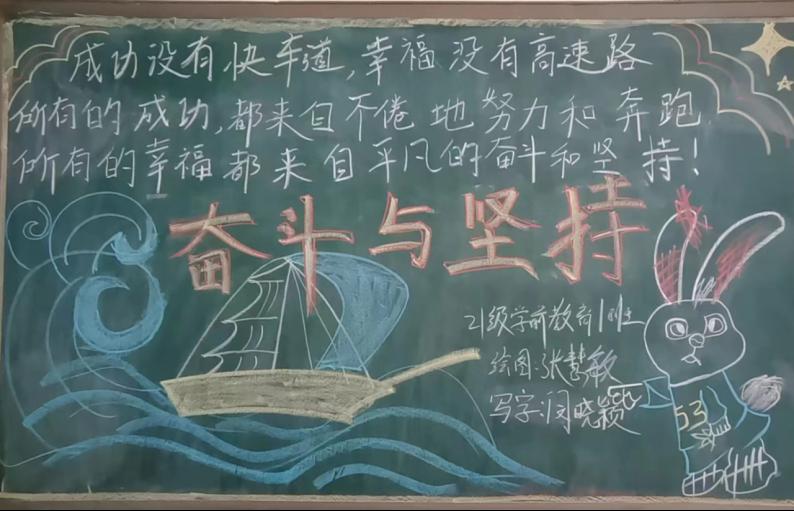 成功没有快车道,幸福没有高速路
所有的成功,都来自不倦地努力和奔跑
所有的幸福都来自平凡的奋斗和坚持!
奋斗与坚持
21级学前教育1班
绘图:张慧敏
写字:闫晓颖
53